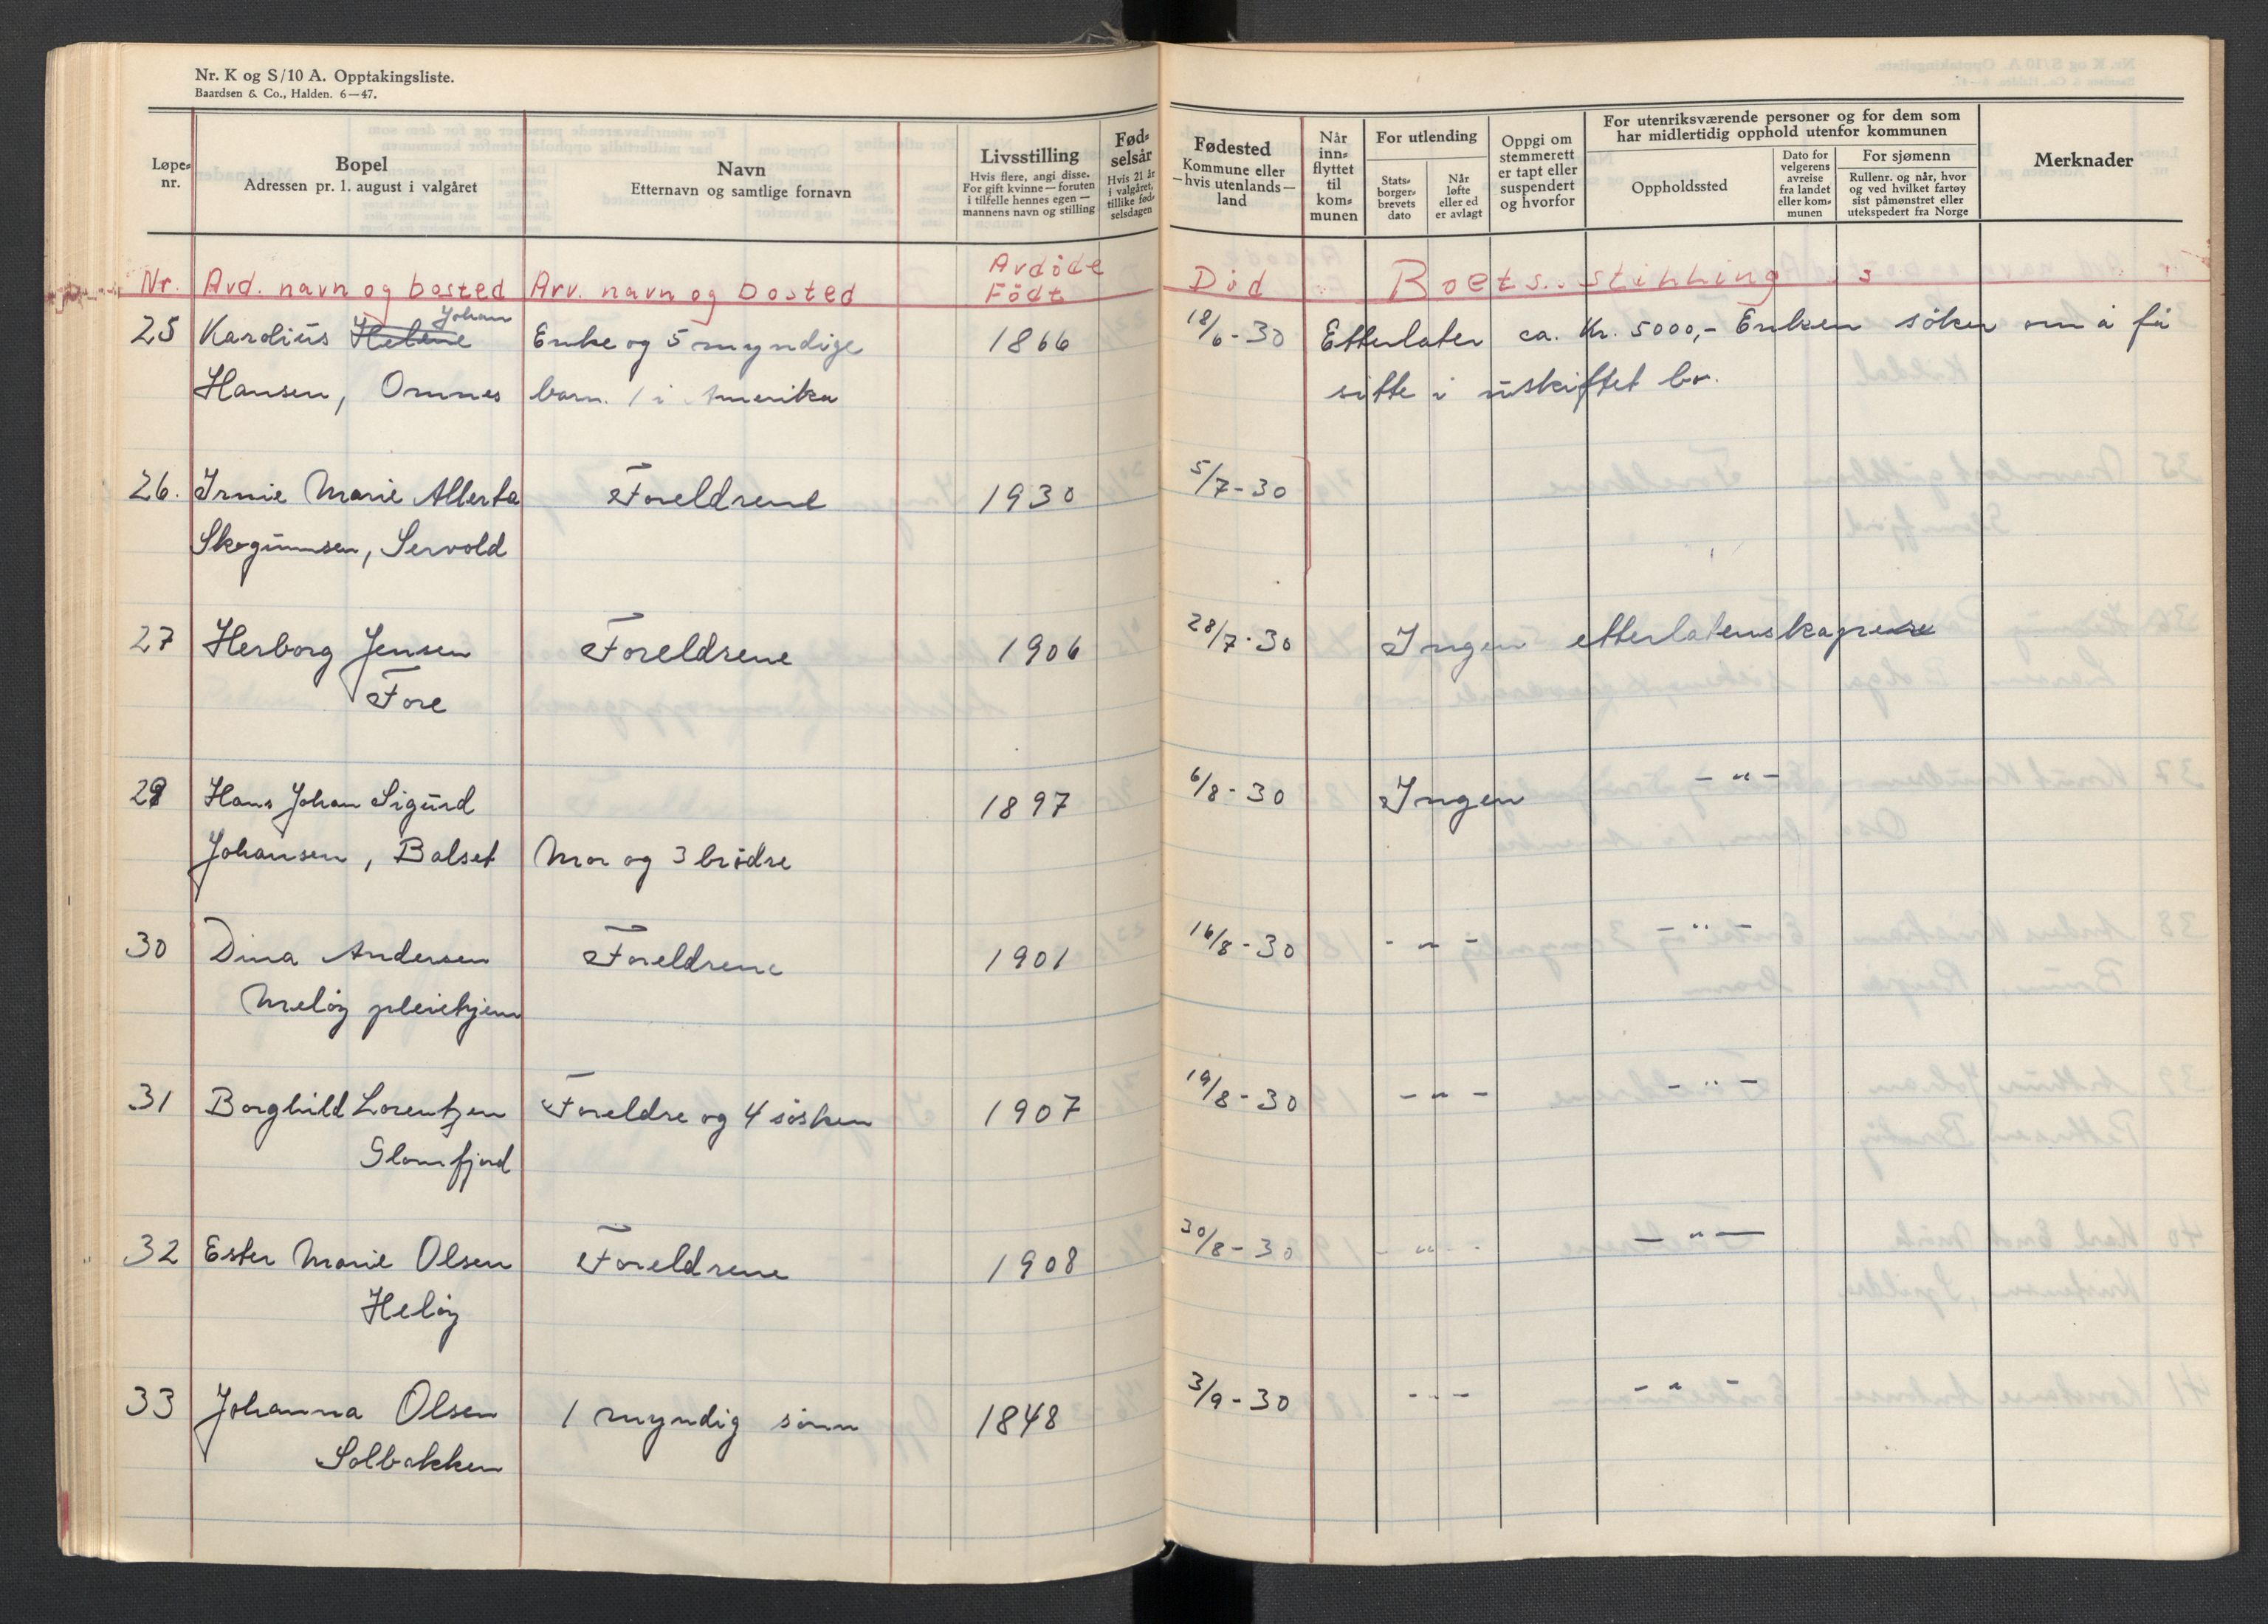 Nr. K og S/10 A. Opptakingsliste.
Baardsen & Co., Halden. 6—47.
Løpe-
nr.
Bopel
Adressen pr. 1. august i valgåret
Navn
Etternavn og samtlige fornavn
Livsstilling
Hvis flere, angi disse.
For gift kvinne — foruten
i tilfelle hennes egen —
mannens navn og stilling
Fød-
selsår
Hvis 21 år
i valgåret,
tillike fød-
selsdagen
Fødested
Kommune eller
—hvis utenlands—
land
Når
inn-
flyttet
til
kom-
munen
For utlending
Stats-
borger-
brevets
dato
Når
løfte
eller ed
er avlagt
Oppgi om
stemmerett
er tapt eller
suspendert
og hvorfor
For utenriksværende personer og for dem som
har midlertidig opphold utenfor kommunen
Oppholdssted
Dato for
velgerens
avreise
fra landet
eller kom-
munen
For sjømenn
Rullenr. og når, hvor
og ved hvilket fartøy
sist påmønstret eller
utekspedert fra Norge
Merknader
Nr. Avd. navn og bosted Arv. navn og bosted Avdöde Födt Död Boets stilling
25 Karolius Helene Johan Enke og 5 myndige 1866 18/6-30 Etterlater ca. Kr. 5000,- Enken söker om å få
Hansen, Ornes barn. 1 i Amerika sitte i uskiftet bo.
26. Irmie Marie Alberta Foreldrene 1930 5/7-30
Skogumsen, Servold
27 Herborg Jensen Foreldrene 1906 28/7-30 Ingen etterlatenskaper
Fore
29 Hans Johan Sigurd 1897 6/8-30 Ingen -"-
Johansen, Balset Mor og 3 brödre
30 Dina Andersen Foreldrene 1901 16/8-30 -"- -"-
Melöy pleiehjem
31 Borghild Lorentzen Foreldre og 4 sösken 1907 19/8-30 -"- -"-
Glomfjord
32 Ester Marie Olsen Foreldrene 1908 30/8-30 -"- -"-
Helöy
33 Johanna Olsen 1 myndig sönn 1848 3/9-30 -"- -"-
Solbakken